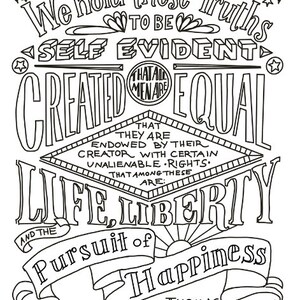 We hold these Truths
TO BE
SELF EVIDENT
THAT ALL
MEN ARE
CREATED EQUAL
THAT
THEY ARE
ENDOWED BY THEIR
CREATOR WITH CERTAIN
UNALIENABLE · RIGHTS ·
THAT AMONG THESE
ARE:
LIFE, LIBERTY
AND THE
Pursuit of
Happiness
THOMAS